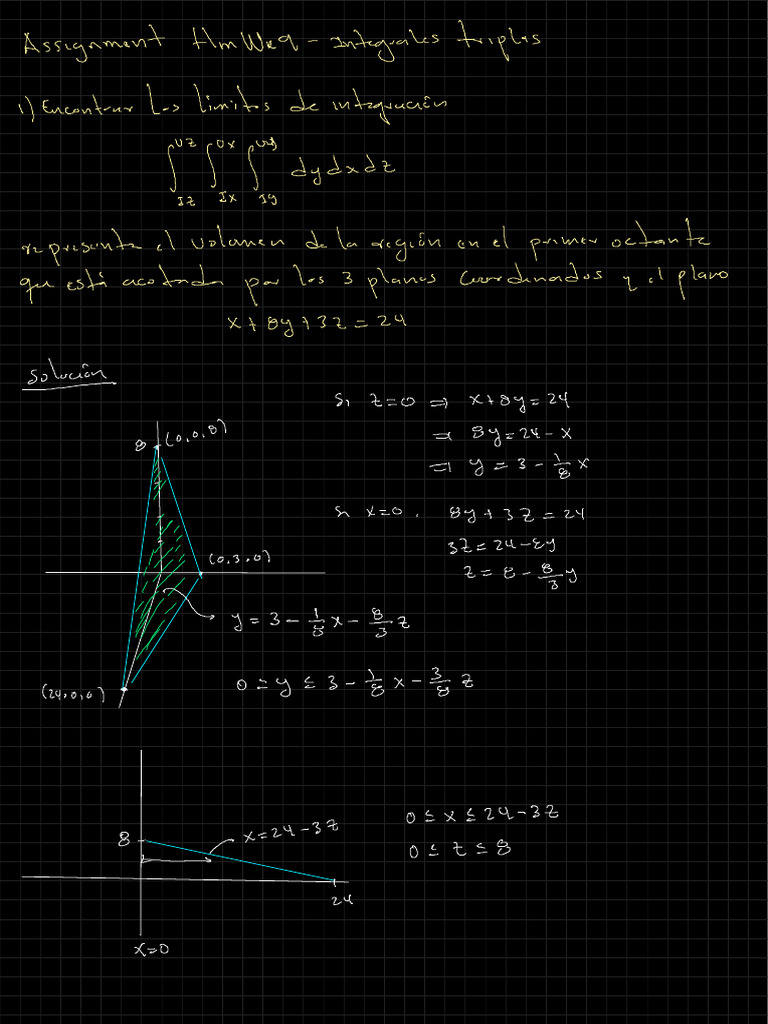 Assignment HmWk9 - Integrales triples
1) Encontrar los límites de integración
∫_{Iz}^{Uz} ∫_{Ix}^{Ux} ∫_{Iy}^{Uy} dy dx dz
representa el volumen de la región en el primer octante
que está acotada por los 3 planos coordinados y el plano
x + 8y + 3z = 24
Solución
Si z=0 ⇒ x+8y=24
⇒ 8y=24-x
⇒ y = 3 - 1/8 x
8 (0,0,8)
Si x=0. 8y+3z=24
3z=24-8y
z = 8 - 8/3 y
(0,3,0)
y = 3 - 1/8 x - 8/3 z
(24,0,0)
0 ≤ y ≤ 3 - 1/8 x - 3/8 z
8
x=24-3z
0 ≤ x ≤ 24-3z
0 ≤ z ≤ 8
24
x=0